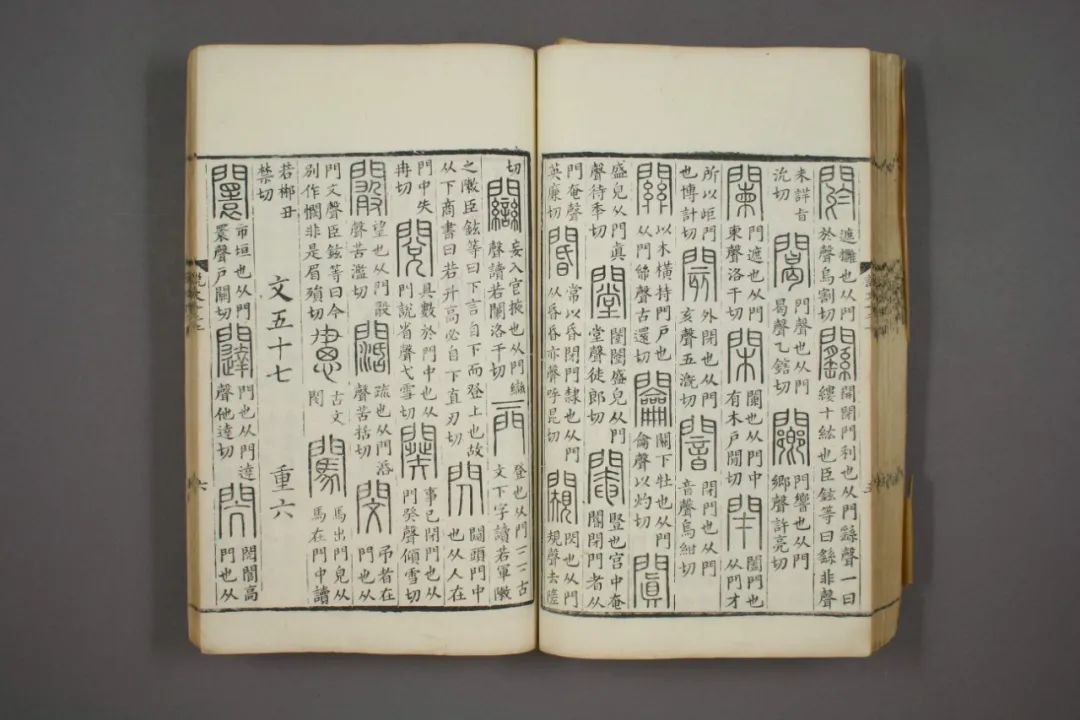 閼遮擁也从門於聲烏割切𨷱開閉門利也从門繇聲一曰縷十紘也臣鉉等曰繇非聲
未詳旨沇切䦪門聲也从門曷聲乙鎋切闀門響也从門鄉聲許亮切
闌門遮也从門柬聲洛干切閑闌也从門中有木戶閒切閉闔門也从門才
所以歫門也博計切閡外閉也从門亥聲五溉切闇閉門也从門音聲烏紺切
關以木橫持門戶也从門𢇇聲古還切𨷲關下牡也从門龠聲以灼切闐
盛皃从門真聲待季切闛闛闛盛皃从門堂聲徒郎切閹豎也宮中奄閽閉門者从
門奄聲英廉切閽常以昏閉門隷也从門从昏昏亦聲呼昆切闚閃也从門規聲去隓
切𨷻妄入宮掖也从門䜌聲讀若闌洛干切𨳇登也从門二二古文下字讀若軍敶
之敶臣鉉等曰下言自下而登上也故从下商書曰若升高必自下直刃切閃闚頭門中也从人在
門中失冉切閱具數於門中也从門說省聲弋雪切闋事已閉門也从門癸聲傾雪切
闞望也从門𢽤聲苦濫切闊疏也从門𣶏聲苦括切閔弔者在門也从
門文聲臣鉉等曰今別作憫非是眉殞切𢠵古文閔闖馬出門皃从馬在門中讀
若郴丑禁切 文五十七 重六
闤市垣也从門睘聲戶關切闥門也从門達聲他達切閌閌閬高門也从